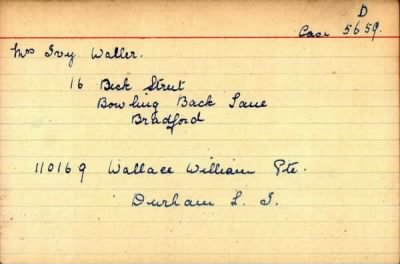 D
Case 5659.
Mrs Ivy Waller.
16 Beck Street
Bowling Back Lane
Bradford
110169 Wallace William Pte.
Durham L. I.